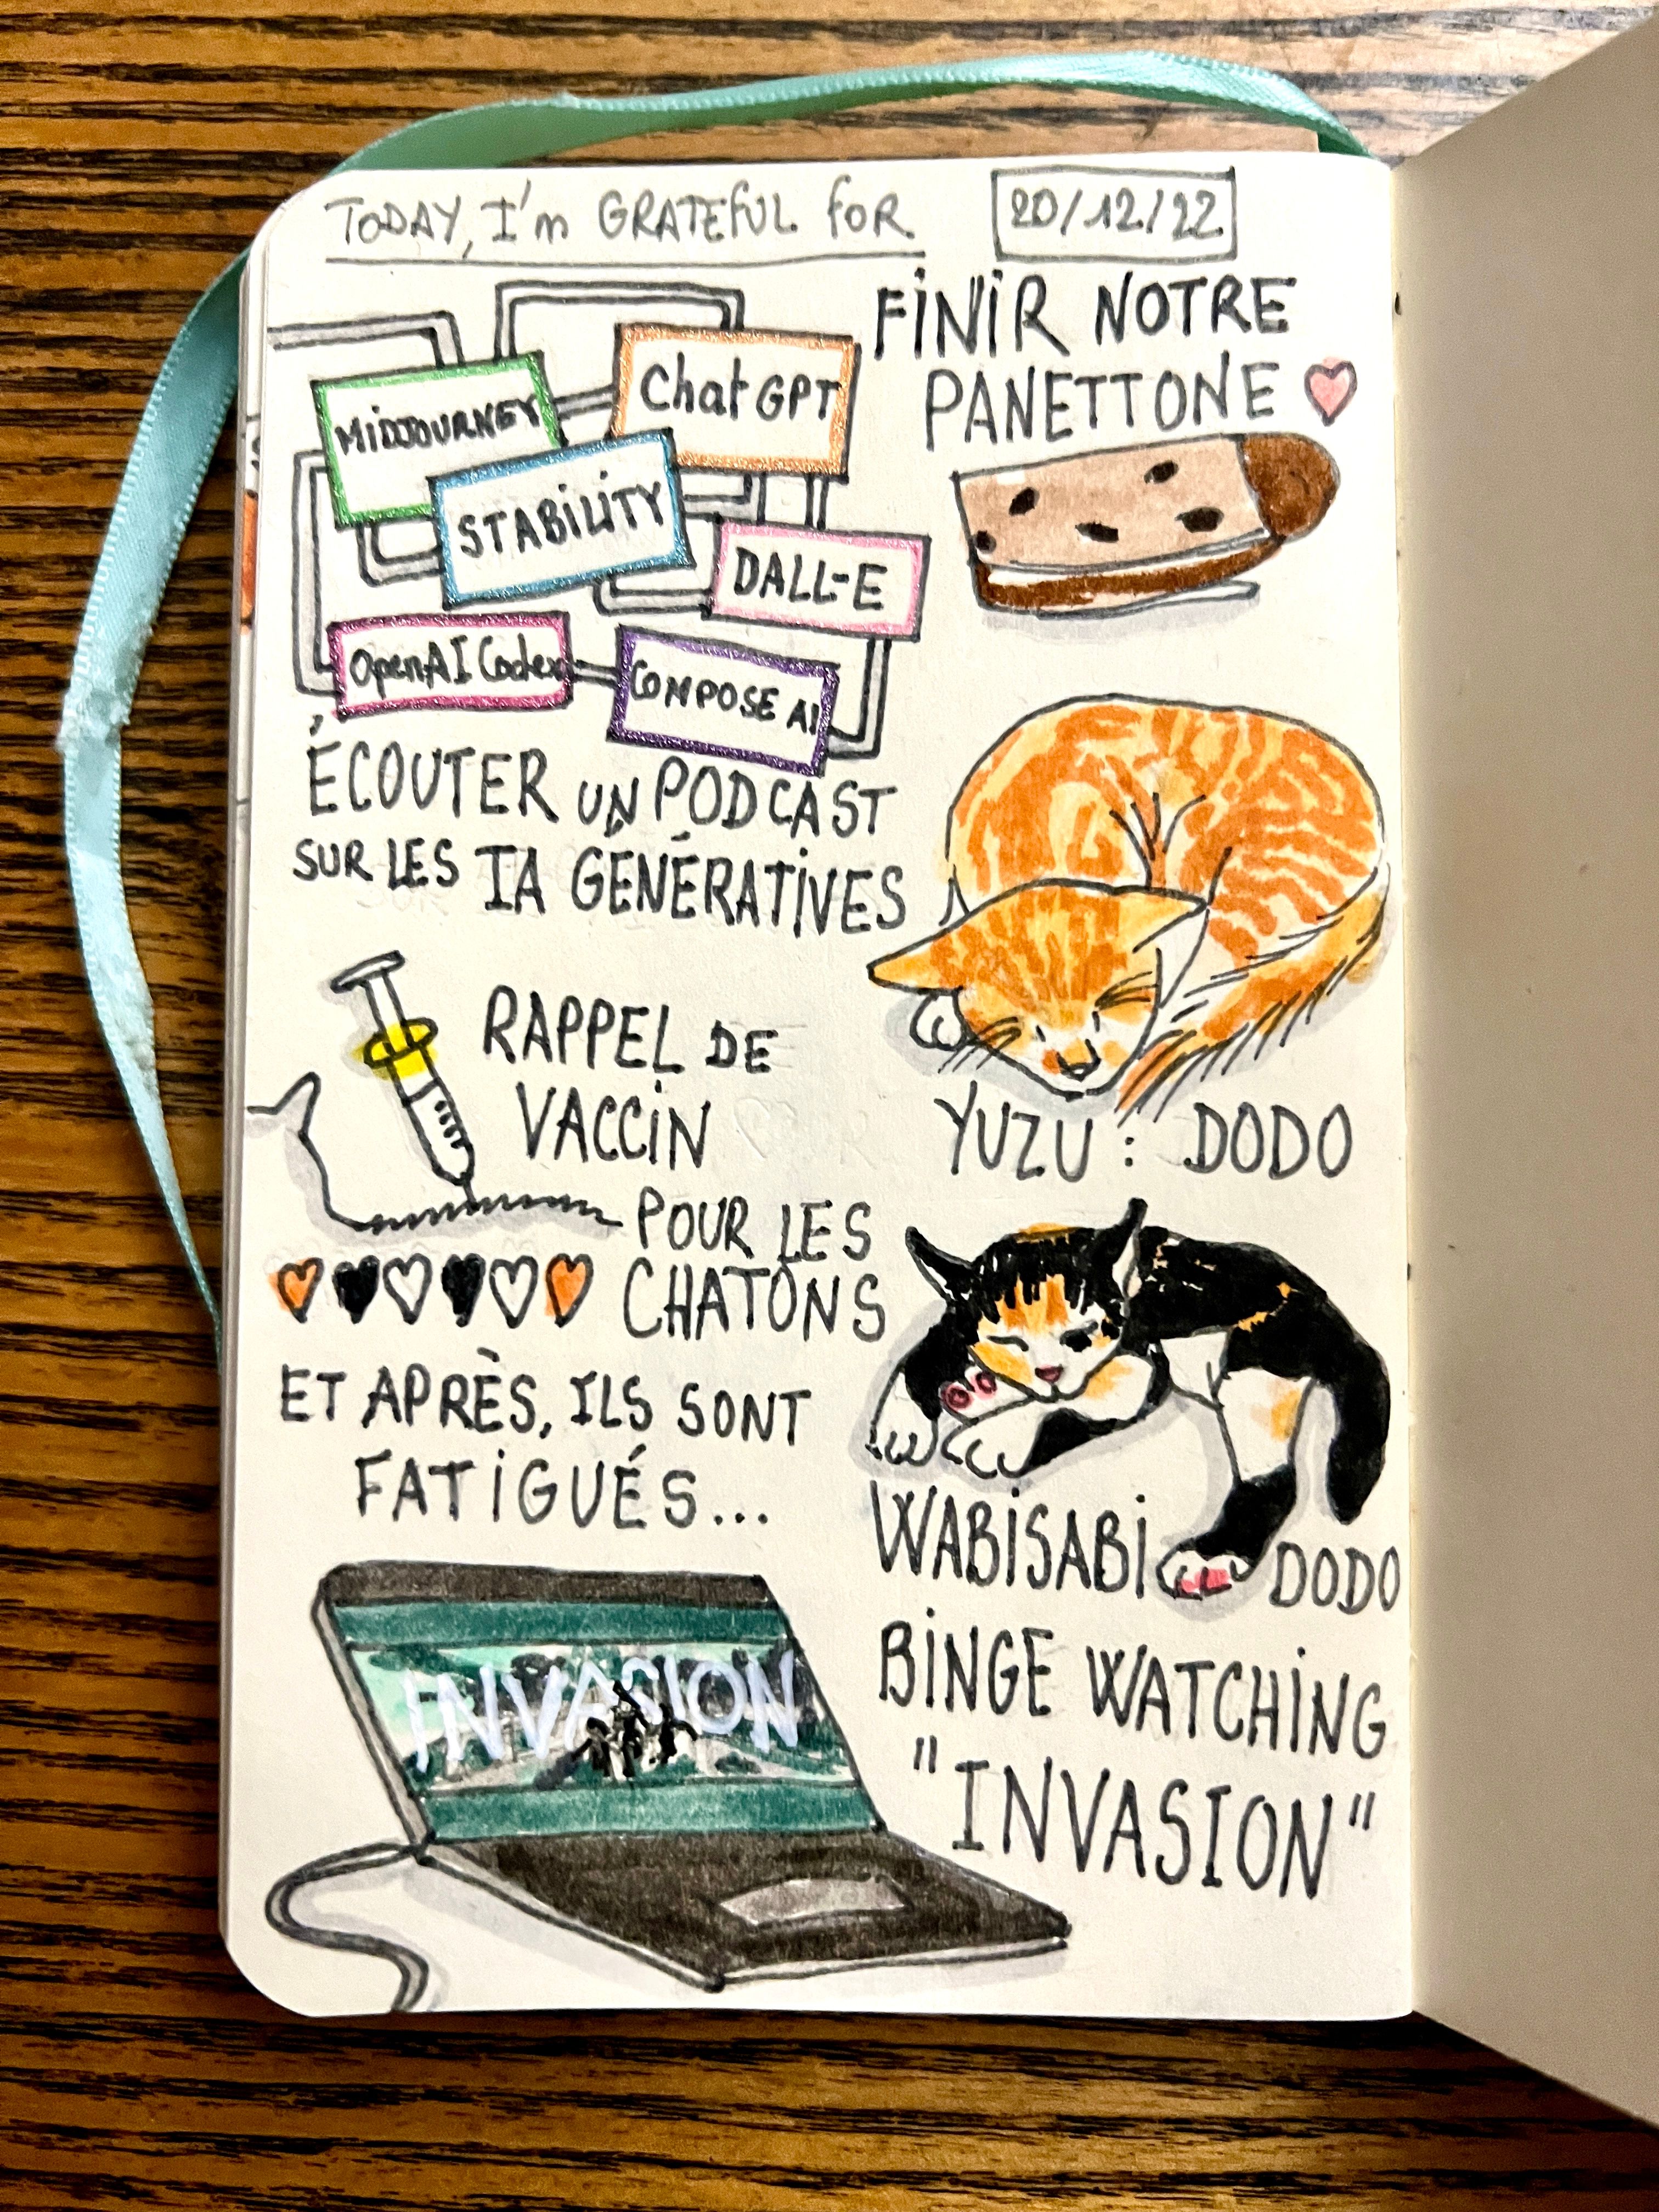 TODAY, I'm GRATEFUL FOR
20/12/22
MIDJOURNEY
ChatGPT
STABILITY
DALL-E
OpenAI Codex
COMPOSE AI
ÉCOUTER UN PODCAST
SUR LES IA GÉNÉRATIVES
FINIR NOTRE
PANETTONE
RAPPEL DE
VACCIN
POUR LES
CHATONS
ET APRÈS, ILS SONT
FATIGUÉS...
YUZU : DODO
WABISABI DODO
INVASION
BINGE WATCHING
"INVASION"